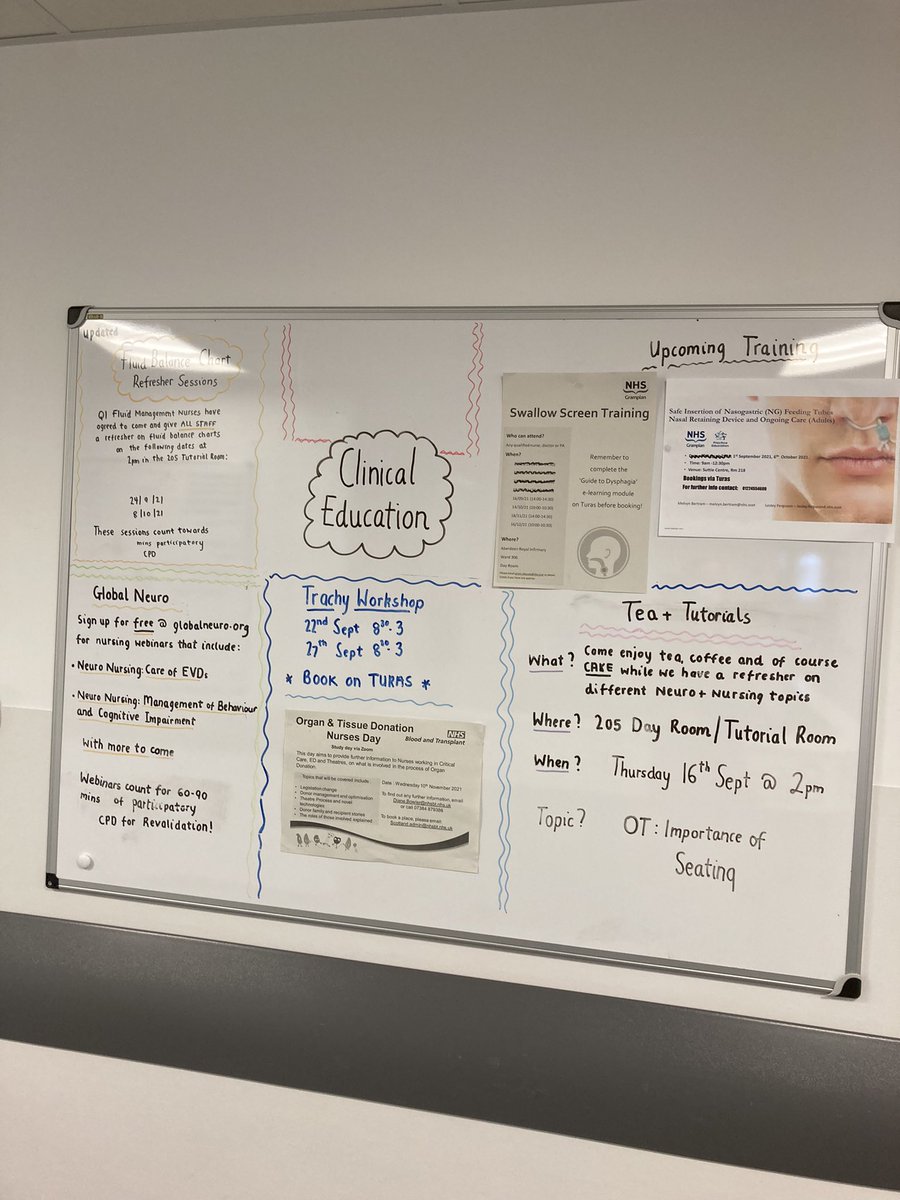 updated
Fluid Balance Chart
Refresher Sessions
QI Fluid Management Nurses have
agreed to come and give ALL STAFF
a refresher on fluid balance charts
on the following dates at
2pm in the 205 Tutorial Room:
24/9/21
8/10/21
These sessions count towards
mins participatory
CPD
Clinical
Education
Upcoming Training
NHS
Grampian
Swallow Screen Training
Who can attend?
Any qualified nurse, doctor or PA.
When?
14/10/21 (10:00-10:30)
18/11/21 (14:00-14:30)
16/12/21 (10:00-10:30)
Where?
Aberdeen Royal Infirmary
Ward 306
Day Room
Remember to
complete the
'Guide to Dysphagia'
e-learning module
on Turas before booking!
Safe Insertion of Nasogastric (NG) Feeding Tubes
Nasal Retaining Device and Ongoing Care (Adults)
NHS
Grampian
1st September 2021, 6th October 2021
Time: 9am -12:00pm
Venue: Suttie Centre, Rm 218
Bookings via Turas
For further info contact:
Global Neuro
Sign up for free @ globalneuro.org
for nursing webinars that include:
• Neuro Nursing: Care of EVDs
• Neuro Nursing: Management of Behaviour
and Cognitive Impairment
With more to come
Webinars count for 60-90
mins of participatory
CPD for Revalidation!
Trachy Workshop
22nd Sept 8³⁰-3
27th Sept 8³⁰-3
* BOOK ON TURAS *
Organ & Tissue Donation
Nurses Day
NHS
Blood and Transplant
Study day via Zoom
This day aims to provide further information to Nurses working in Critical
Care, ED and Theatres, on what is involved in the process of Organ
Donation.
Topics that will be covered include
• Legislation change
• Donor management and optimisation
• Theatre Process and novel
technologies
• Donor family and recipient stories
• The roles of those involved explained
Date : Wednesday 10th November 2021
To find out any further information, email
or call 07384 879386
To book a place, please email
Scotland.admin@nhsbt.nhs.uk
Tea + Tutorials
What? Come enjoy tea, coffee and of course
CAKE while we have a refresher on
different Neuro + Nursing topics
Where? 205 Day Room/Tutorial Room
When? Thursday 16th Sept @ 2pm
Topic? OT: Importance of
Seating